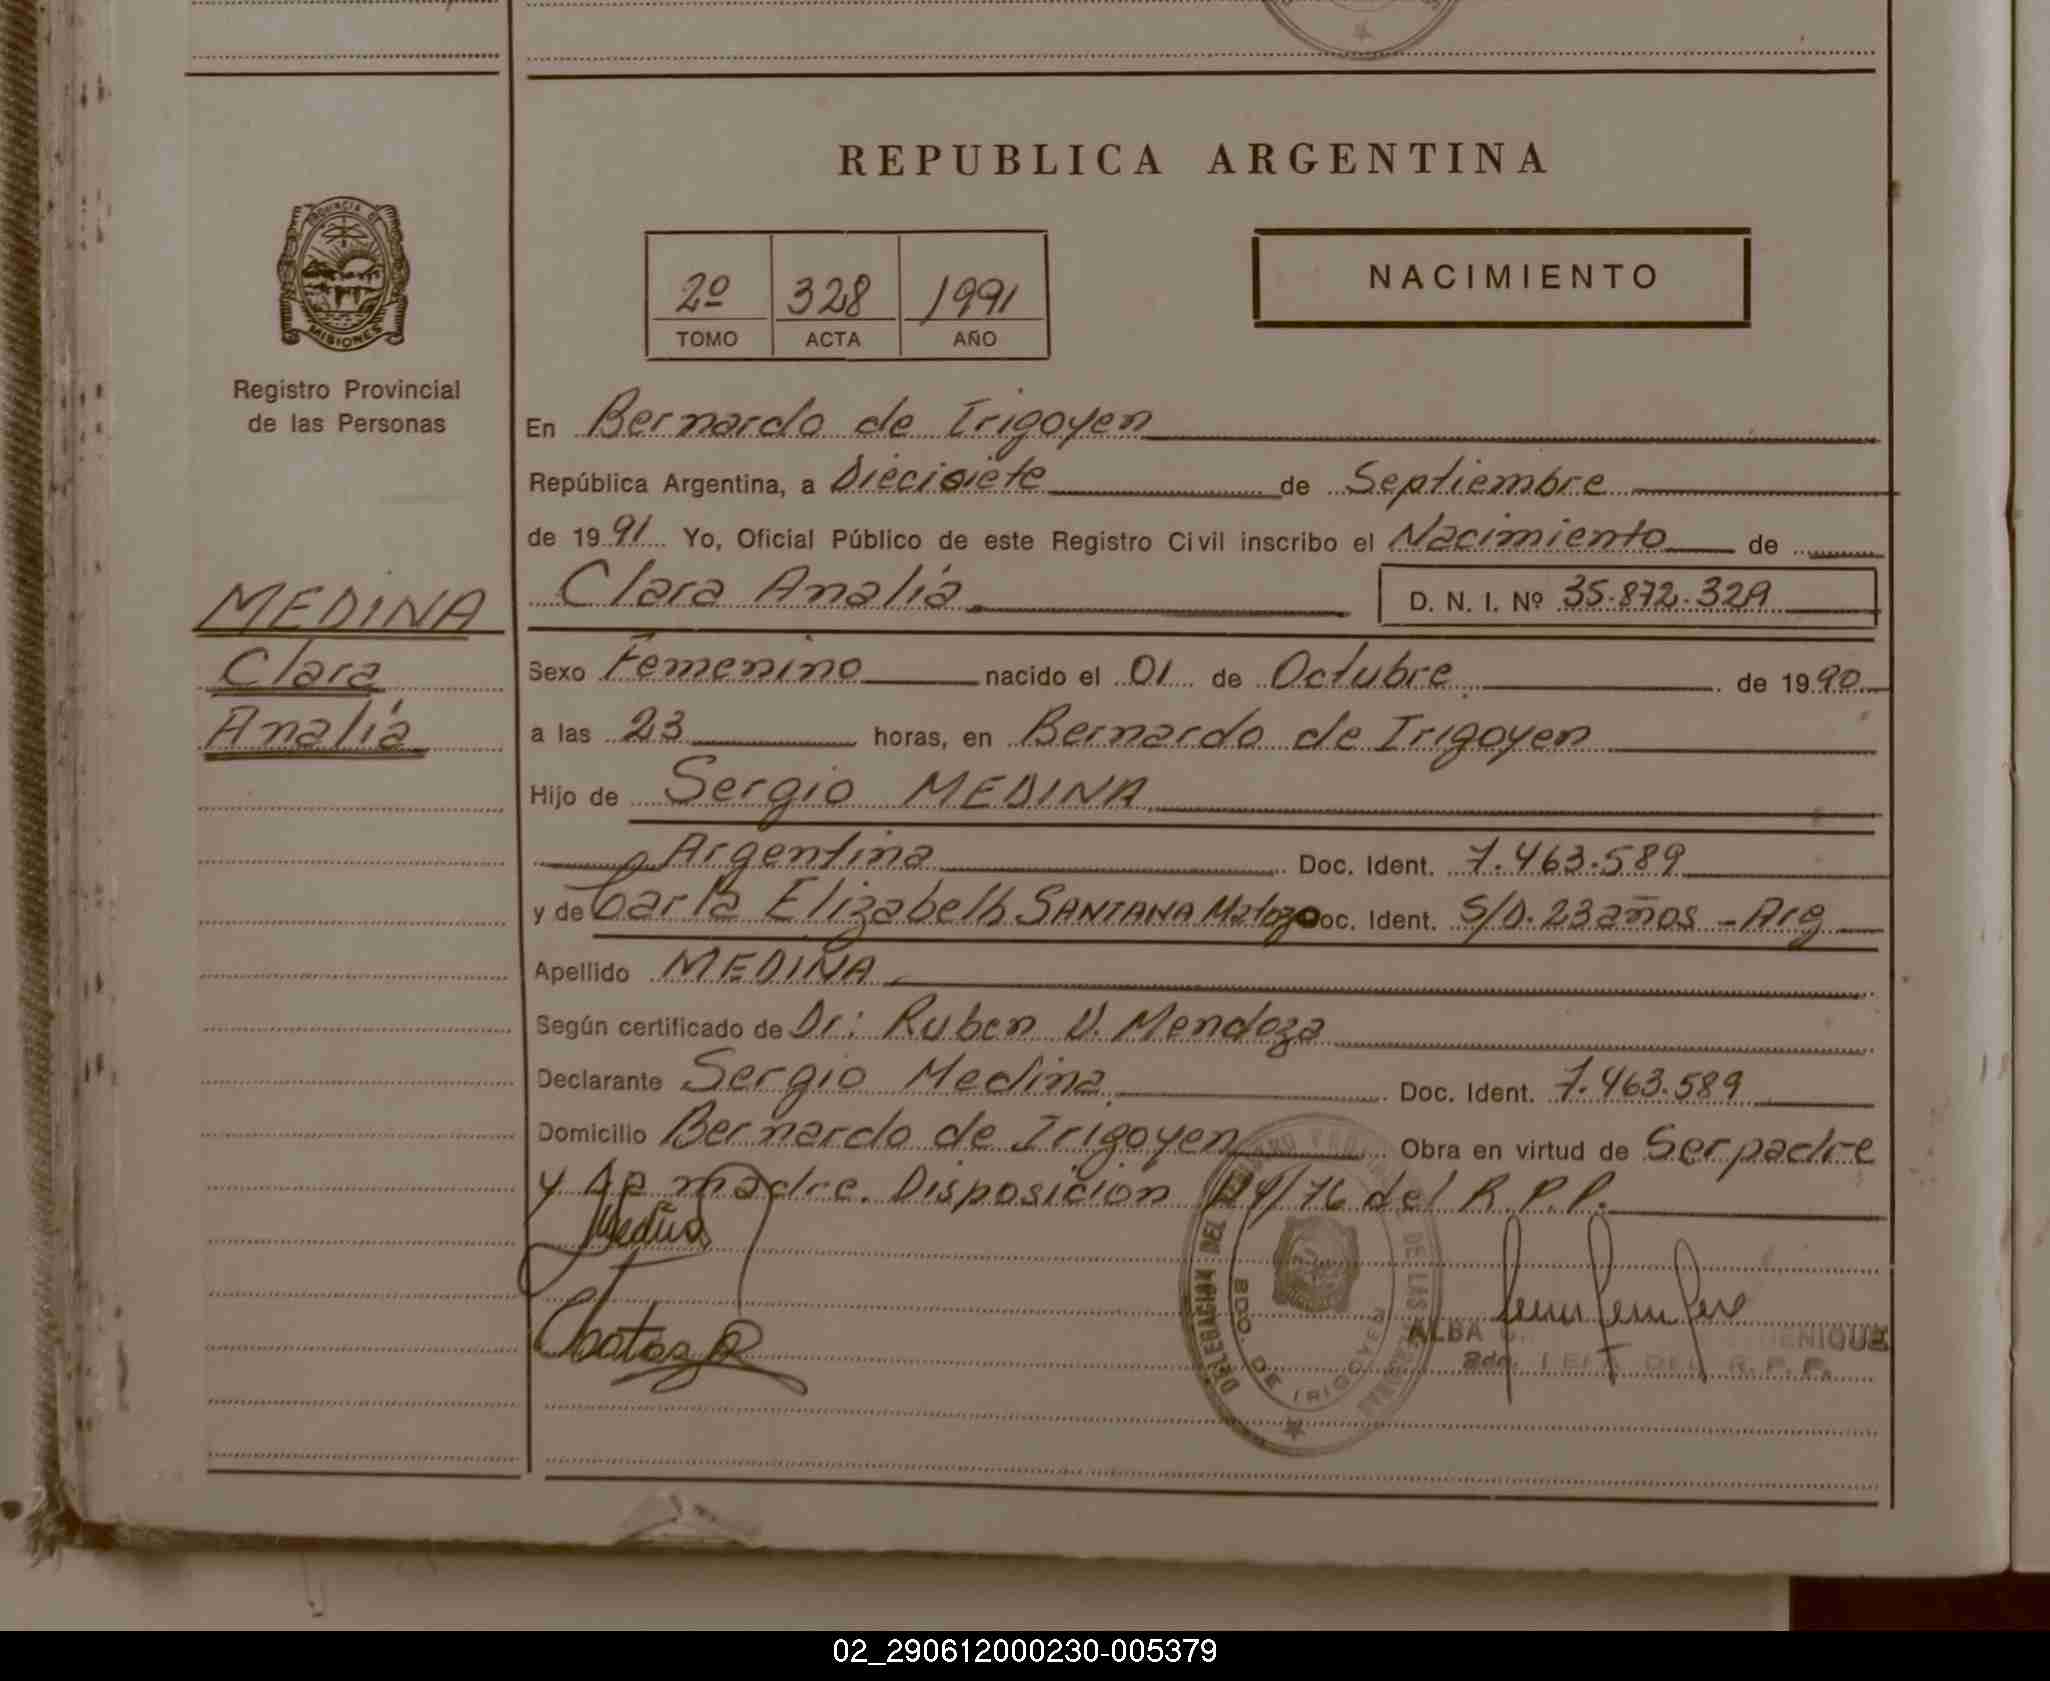 REPUBLICA ARGENTINA
PROVINCIA DE
MISIONES
Registro Provincial
de las Personas
2º 328 1991
TOMO ACTA AÑO
NACIMIENTO
En Bernardo de Irigoyen
República Argentina, a Diecisiete de Septiembre
de 1991 Yo, Oficial Público de este Registro Civil inscribo el Nacimiento de
Clara Analía D. N. I. Nº 35.872.329
MEDINA
Clara
Analía
Sexo Femenino nacido el 01 de Octubre de 1990
a las 23 horas, en Bernardo de Irigoyen
Hijo de Sergio MEDINA
Argentina Doc. Ident. 7.463.589
y de Carla Elizabeth SANTANA Matozo Doc. Ident. S/D. 23 años - Arg
Apellido MEDINA
Según certificado de Dr: Ruben D. Mendoza
Declarante Sergio Medina Doc. Ident. 7.463.589
Domicilio Bernardo de Irigoyen Obra en virtud de Ser padre
y madre. Disposición /76 del R.P.P.
Medina
DELEGACION DEL REGISTRO PROVINCIAL DE LAS PERSONAS
BDO. DE IRIGOYEN
ALBA
JEFA DEL R. P. P.
02_290612000230-005379